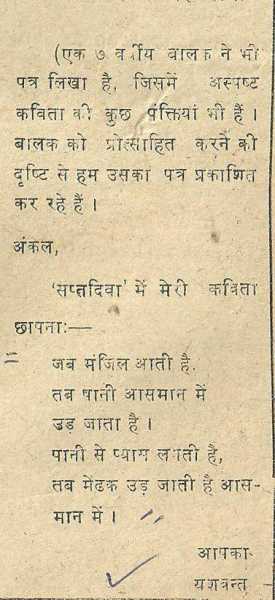 (एक ७ वर्षीय बालक ने भी
पत्र लिखा है, जिसमें अस्पष्ट
कविता की कुछ पंक्तियां भी हैं ।
बालक को प्रोत्साहित करने की
दृष्टि से हम उसका पत्र प्रकाशित
कर रहे हैं ।
अंकल,
'सप्तदिवा' में मेरी कविता
छापना:—
जब मंजिल आती है,
तब पानी आसमान में
उड़ जाता है ।
पानी से प्यास लगती है,
तब मेंढक उड़ जाती है आस-
मान में ।
आपका
यशवन्त